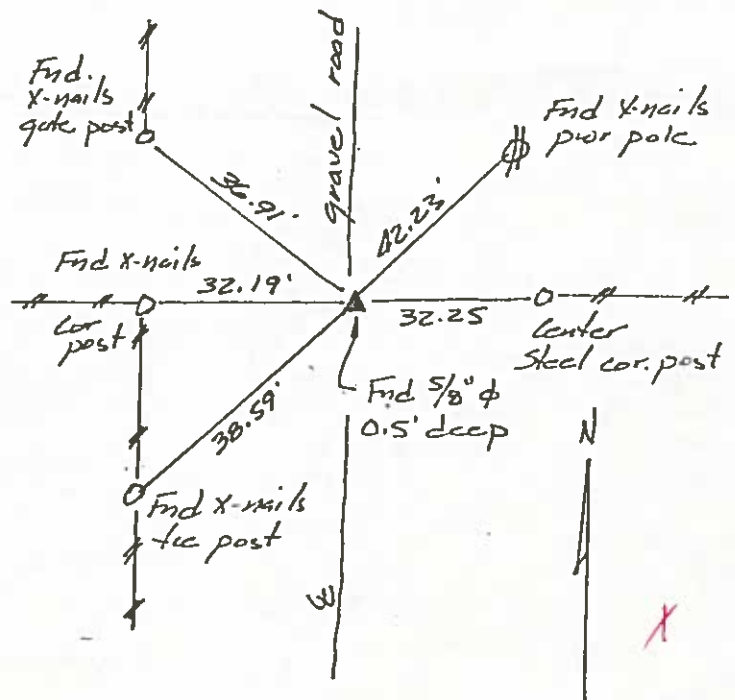 gravel road
Fnd.
X-nails
gate post
Fnd X-nails
pwr pole
36.91'
42.23'
Fnd X-nails
32.19'
32.25
Cor
post
Center
Steel cor. post
38.59'
Fnd 5/8" ϕ
0.5' deep
N
Fnd X-nails
fce post
X